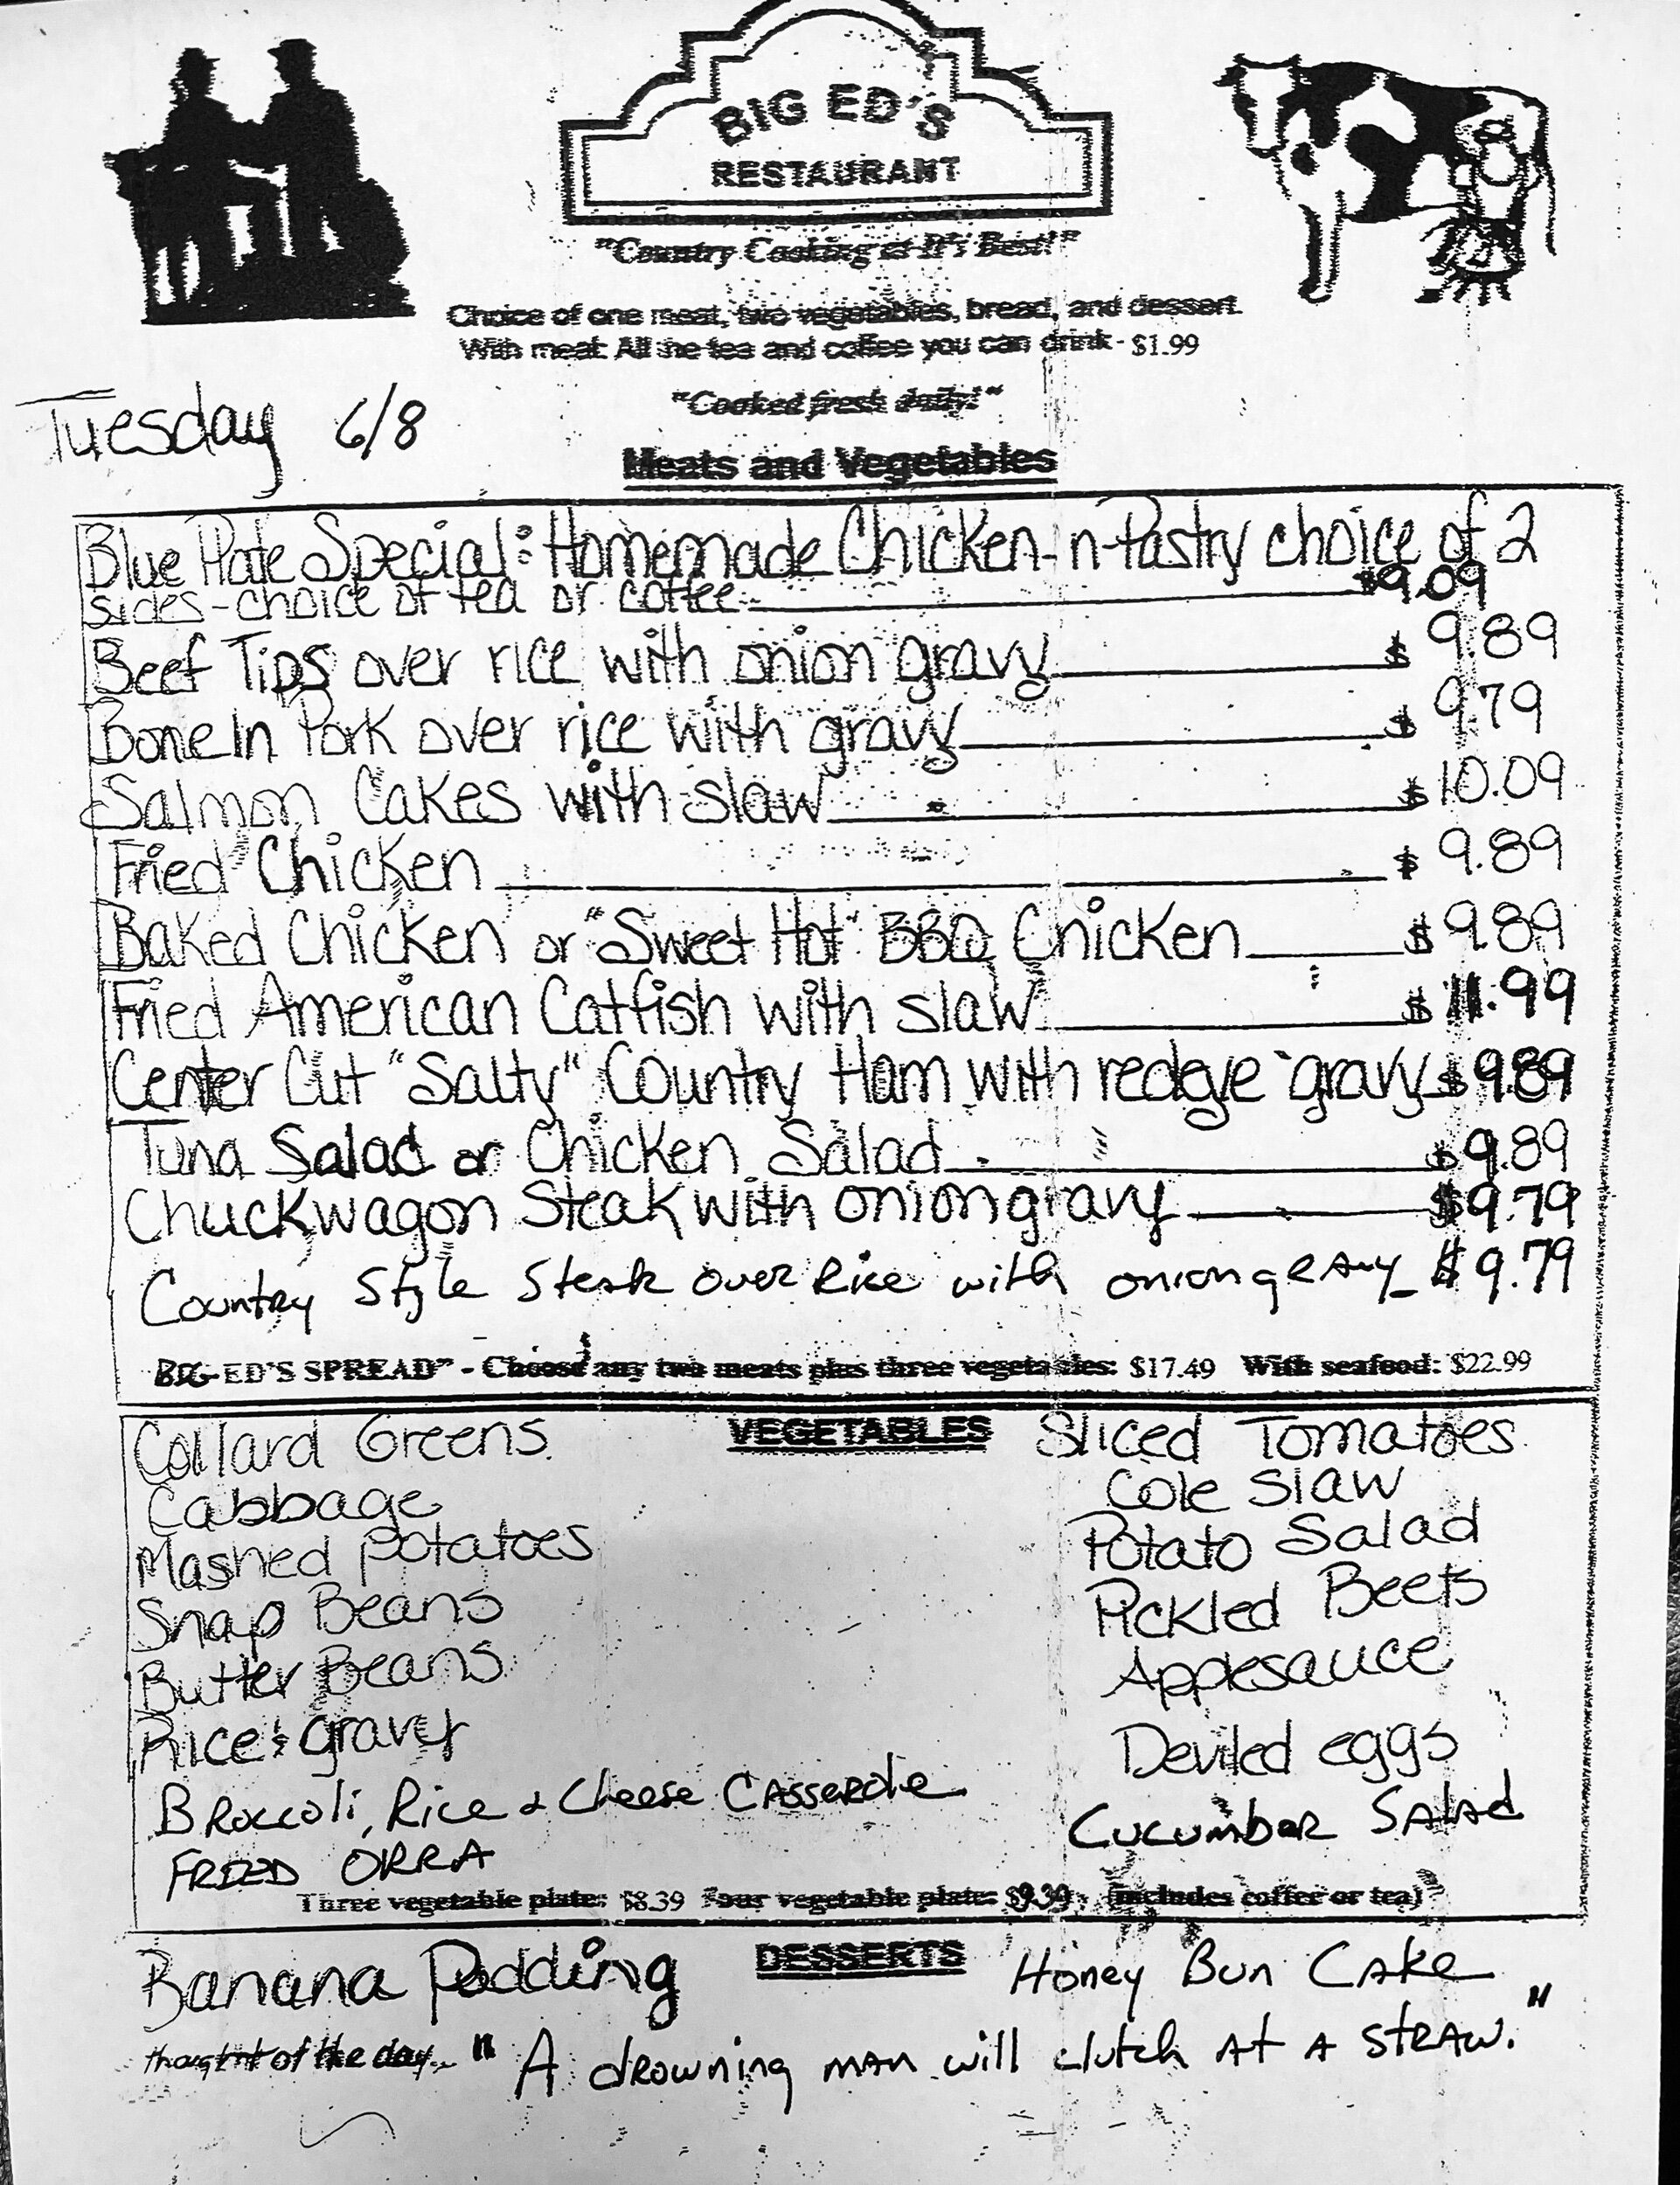 BIG ED'S
RESTAURANT
"Country Cooking at It's Best!"
Choice of one meat, two vegetables, bread, and dessert.
With meal: All the tea and coffee you can drink - $1.99
"Cooked fresh daily!"
Tuesday 6/8
Meats and Vegetables
Blue Plate Special: Homemade Chicken-n-Pastry choice of 2
sides-choice of tea or coffee $9.09
Beef Tips over rice with onion gravy $ 9.89
Bone In Pork over rice with gravy $ 9.79
Salmon Cakes with slaw $ 10.09
Fried Chicken $ 9.89
Baked Chicken or "Sweet Hot" BBQ Chicken $ 9.89
Fried American Catfish with slaw $ 11.99
Center Cut "Salty" Country Ham with redeye gravy $9.89
Tuna Salad or Chicken Salad $9.89
Chuckwagon Steak with onion gravy $9.79
Country Style Steak over Rice with onion gravy $9.79
BIG ED'S SPREAD" - Choose any two meats plus three vegetables: $17.49 With seafood: $22.99
VEGETABLES
Collard Greens
Cabbage
Mashed Potatoes
Snap Beans
Butter Beans
Rice & gravy
Broccoli, Rice & Cheese Casserole
FRIED OKRA
Sliced Tomatoes
Cole Slaw
Potato Salad
Pickled Beets
Applesauce
Deviled eggs
Cucumber Salad
Three vegetable plate: $8.39 Four vegetable plate: $9.39 (includes coffee or tea)
DESSERTS
Banana Pudding
Honey Bun Cake
thought of the day.. "A drowning man will clutch at a straw."